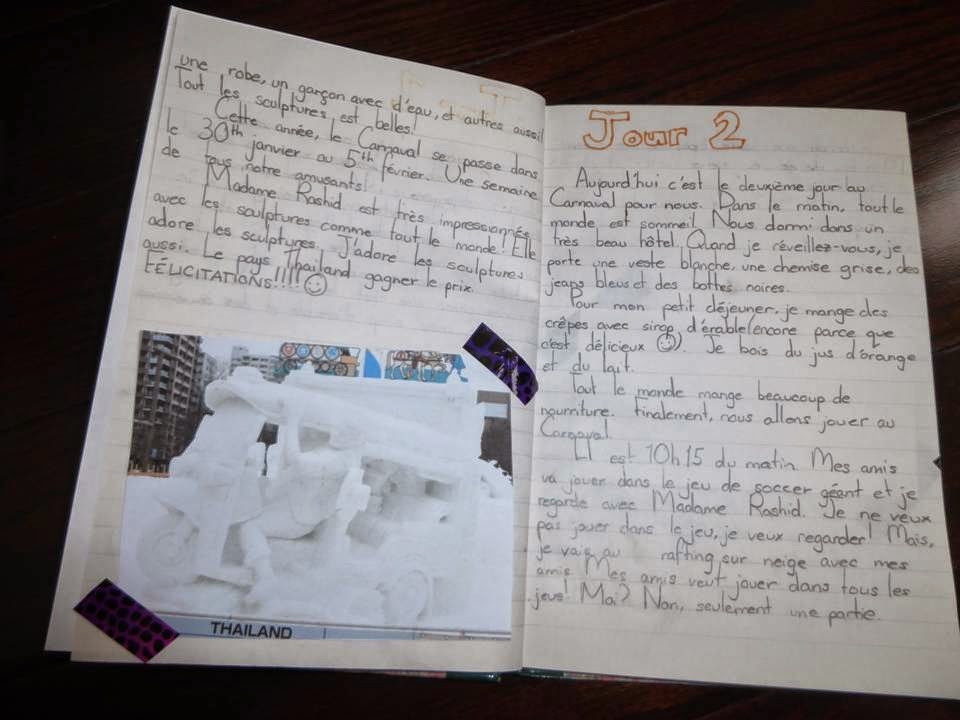 une robe, un garçon avec d'eau, et autres aussi!
Tout les sculptures est belles!
Cette année, le Carnaval se passe dans
le 30th janvier au 5th février. Une semaine
de tous notre amusants!
Madame Rashid est très impressionnés
avec les sculptures comme tout le monde! Elle
adore les sculptures. J'adore les sculptures
aussi. Le pays Thailand gagner le prix.
FÉLICITATIONS!!!!
THAILAND
Jour 2
Aujourd'hui c'est le deuxième jour au
Carnaval pour nous. Dans le matin, tout le
monde est sommeil. Nous dormi dans un
très beau hôtel. Quand je réveillez-vous, je
porte une veste blanche, une chemise grise, des
jeans bleus et des bottes noires.
Pour mon petit déjeuner, je mange des
crêpes avec sirop d'érable (encore parce que
c'est délicieux ☺). Je bois du jus d'orange
et du lait.
Tout le monde mange beaucoup de
nourriture. Finalement, nous allons jouer au
Carnaval.
Il est 10h15 du matin. Mes amis
va jouer dans le jeu de soccer géant et je
regarde avec Madame Rashid. Je ne veux
pas jouer dans le jeu, je veux regarder! Mais,
je vais au rafting sur neige avec mes
amis. Mes amis veut jouer dans tous les
jeus! Moi? Non, seulement une partie.